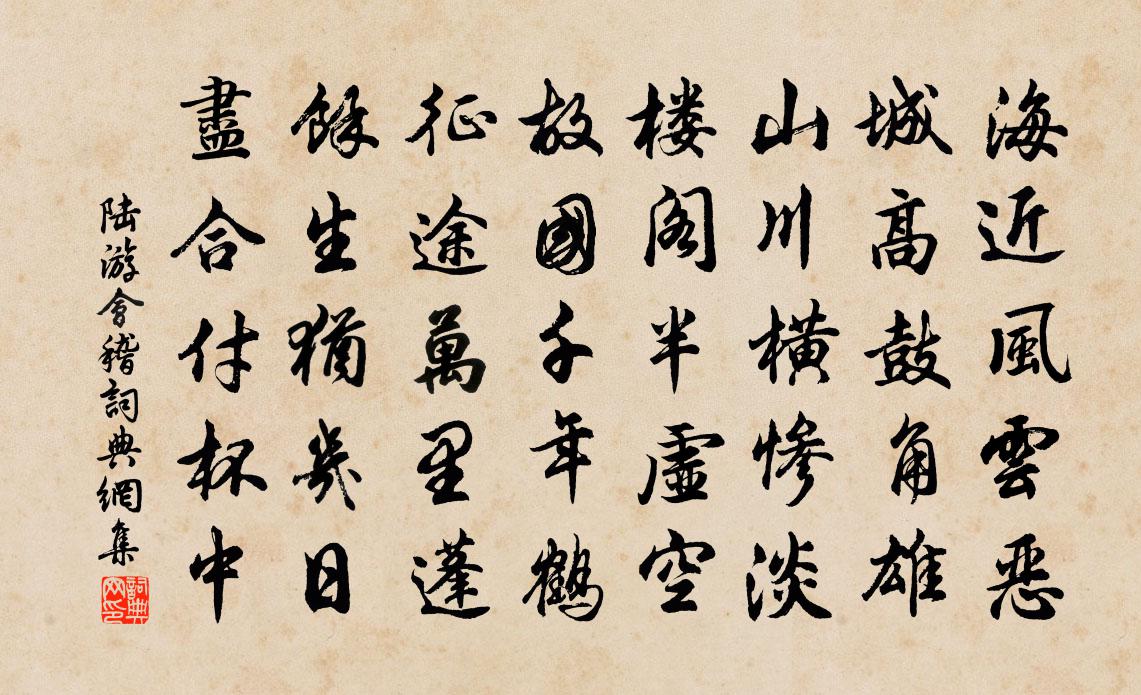 海近風雲惡
城高鼓角雄
山川橫慘淡
楼阁半虛空
故國千年鶴
征途萬里蓬
餘生猶幾日
盡合付杯中
陆游會稽詞典網集
詞典
网印